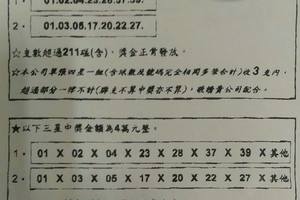 01.02.04.23.28.37.39.
2. 01.03.05.17.20.22.27.
☆支數超過211碰(含),獎金正常發放。
☆本公司單張四星一組(含球數及號碼完全相同多簽合計)收3支內,
超過部分一律不計(碰支不算中獎亦不算),敬請貴公司配合。
★以下三星中獎金額為4萬元整。
1. 01 X 02 X 04 X 23 X 28 X 37 X 39 X 其他
2. 01 X 03 X 05 X 17 X 20 X 22 X 27 X 其他